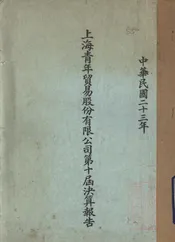 中華民國二十三年
上海青年貿易股份有限公司第十屆決算報告